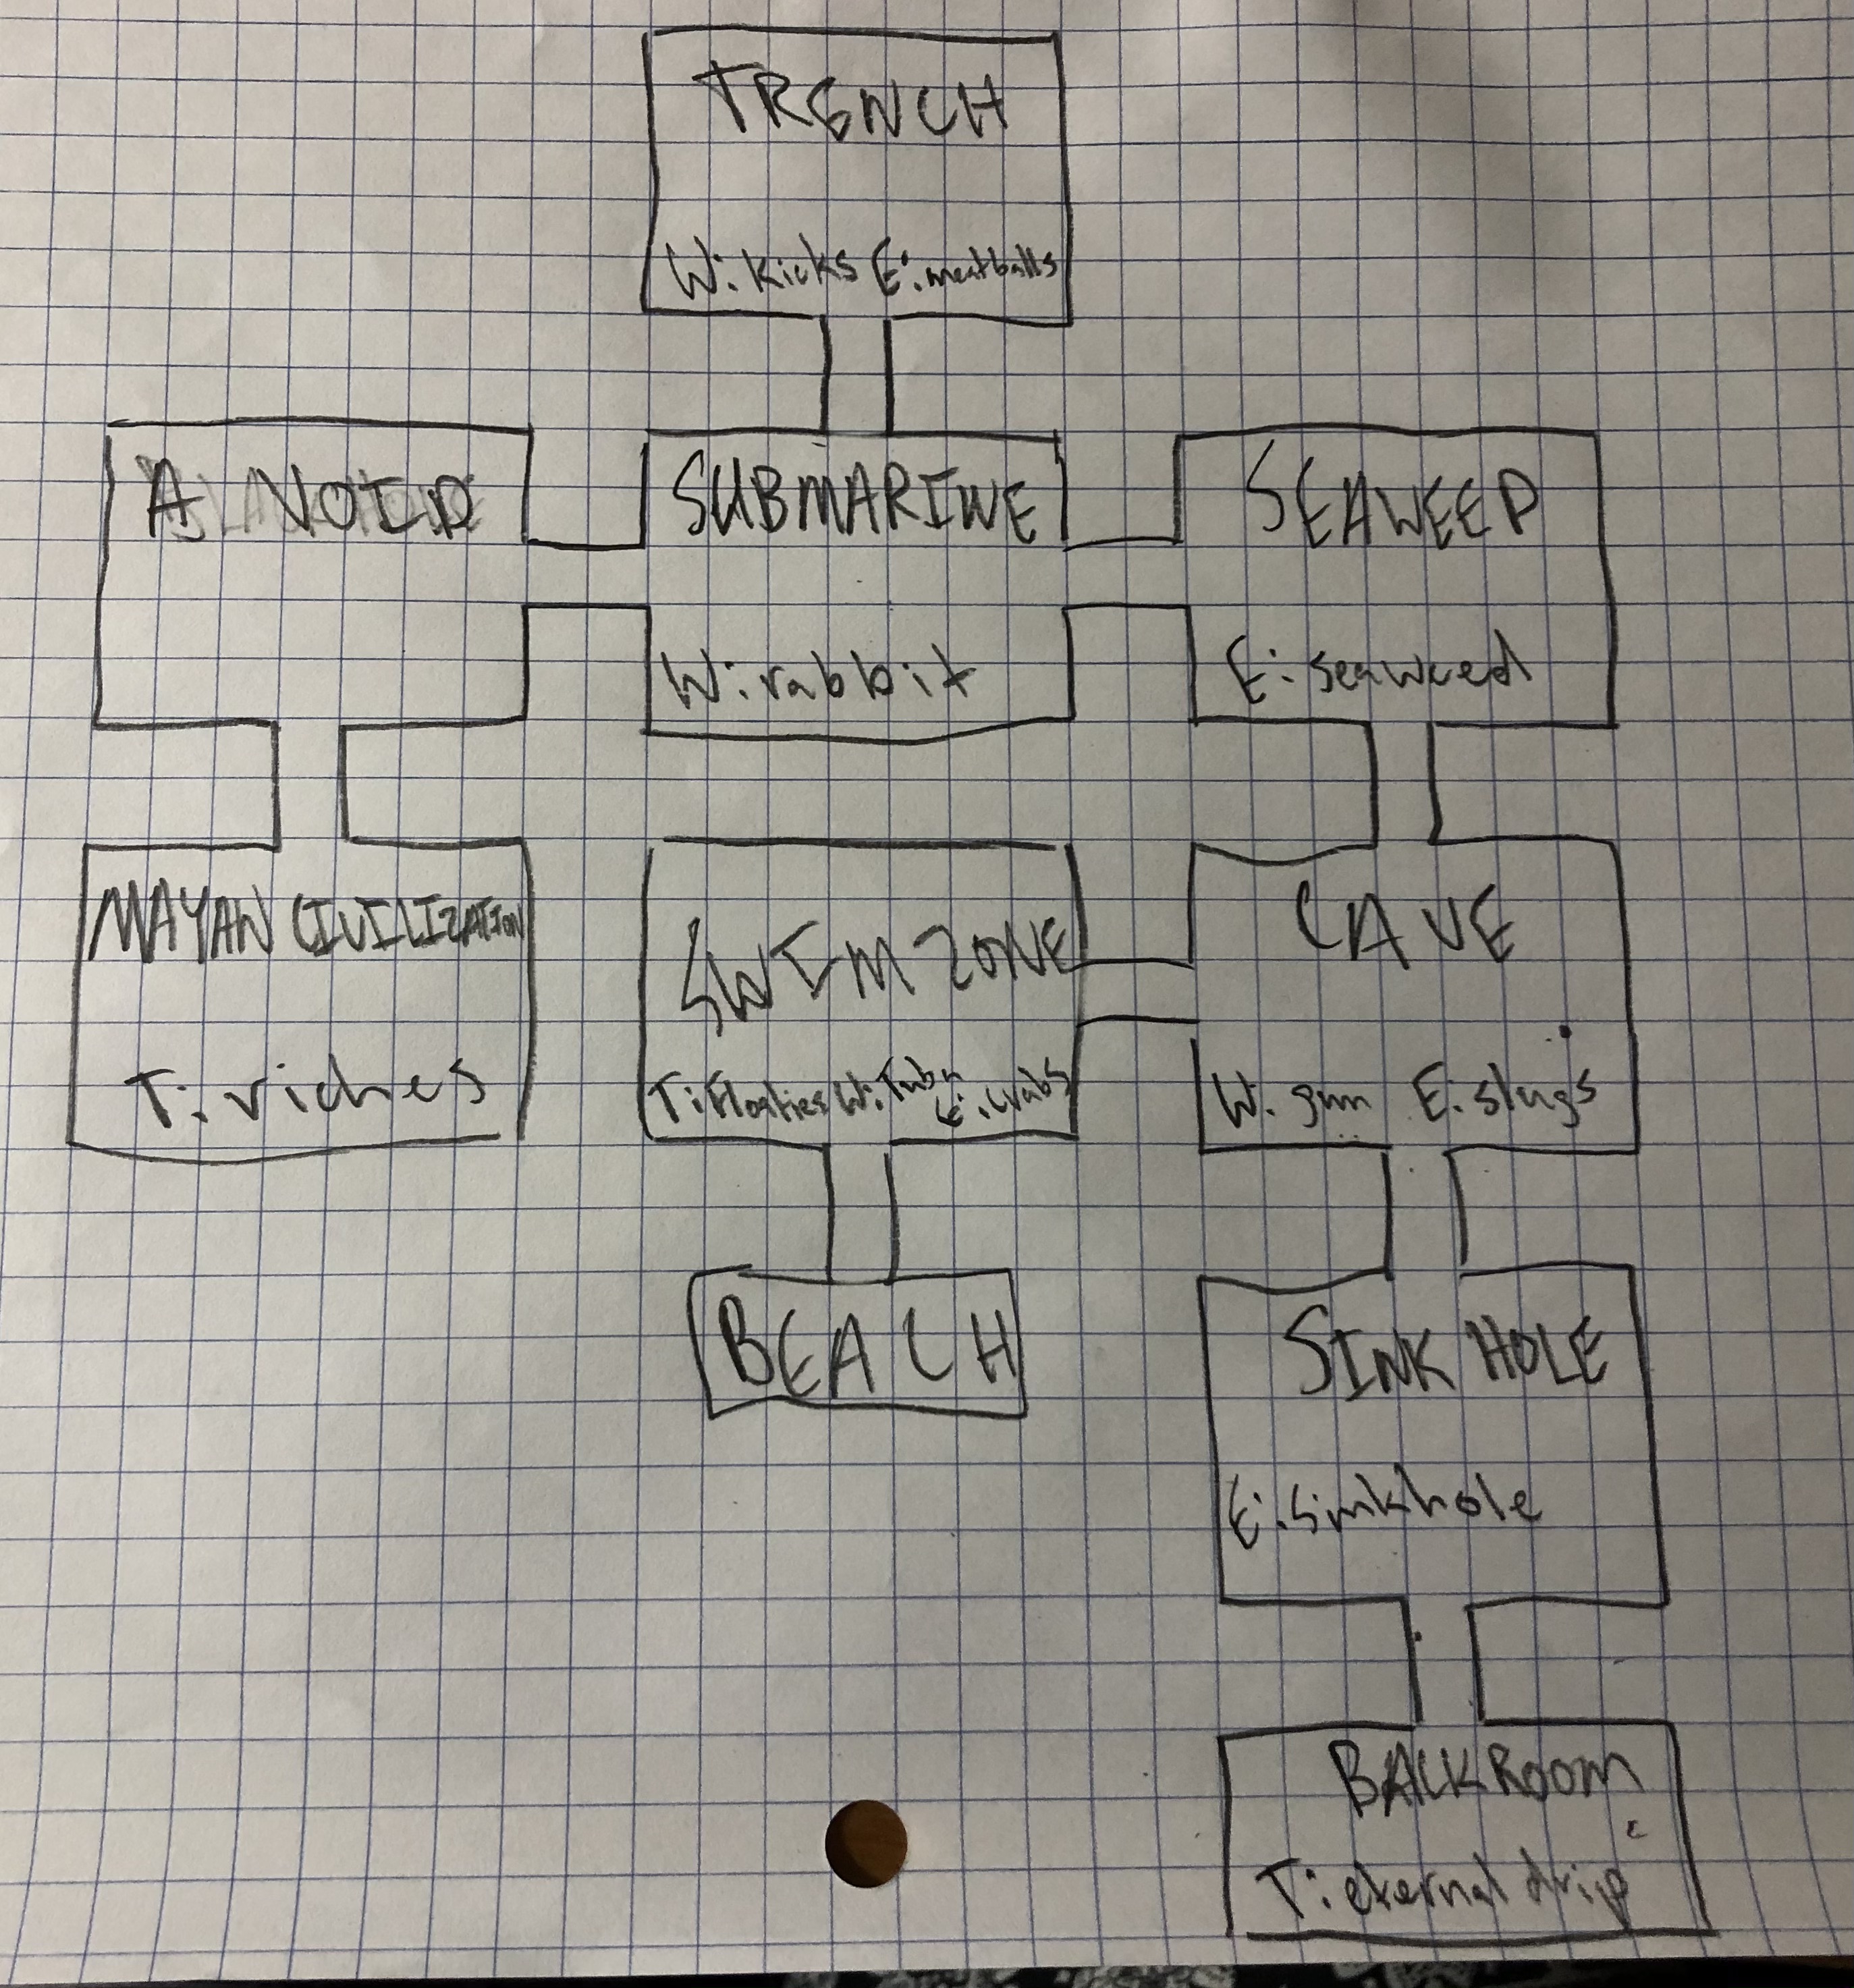 TRENCH
W: kicks E: meatballs
A VOID
SUBMARINE
SEAWEED
W: rabbit
E: seaweed
MAYAN CIVILIZATION
SWIM ZONE
CAVE
T: riches
T: Floaties W: Tuba
E: crabs
W: gun E: slugs
BEACH
SINK HOLE
E: sinkhole
BACKROOM
T: eternal drip